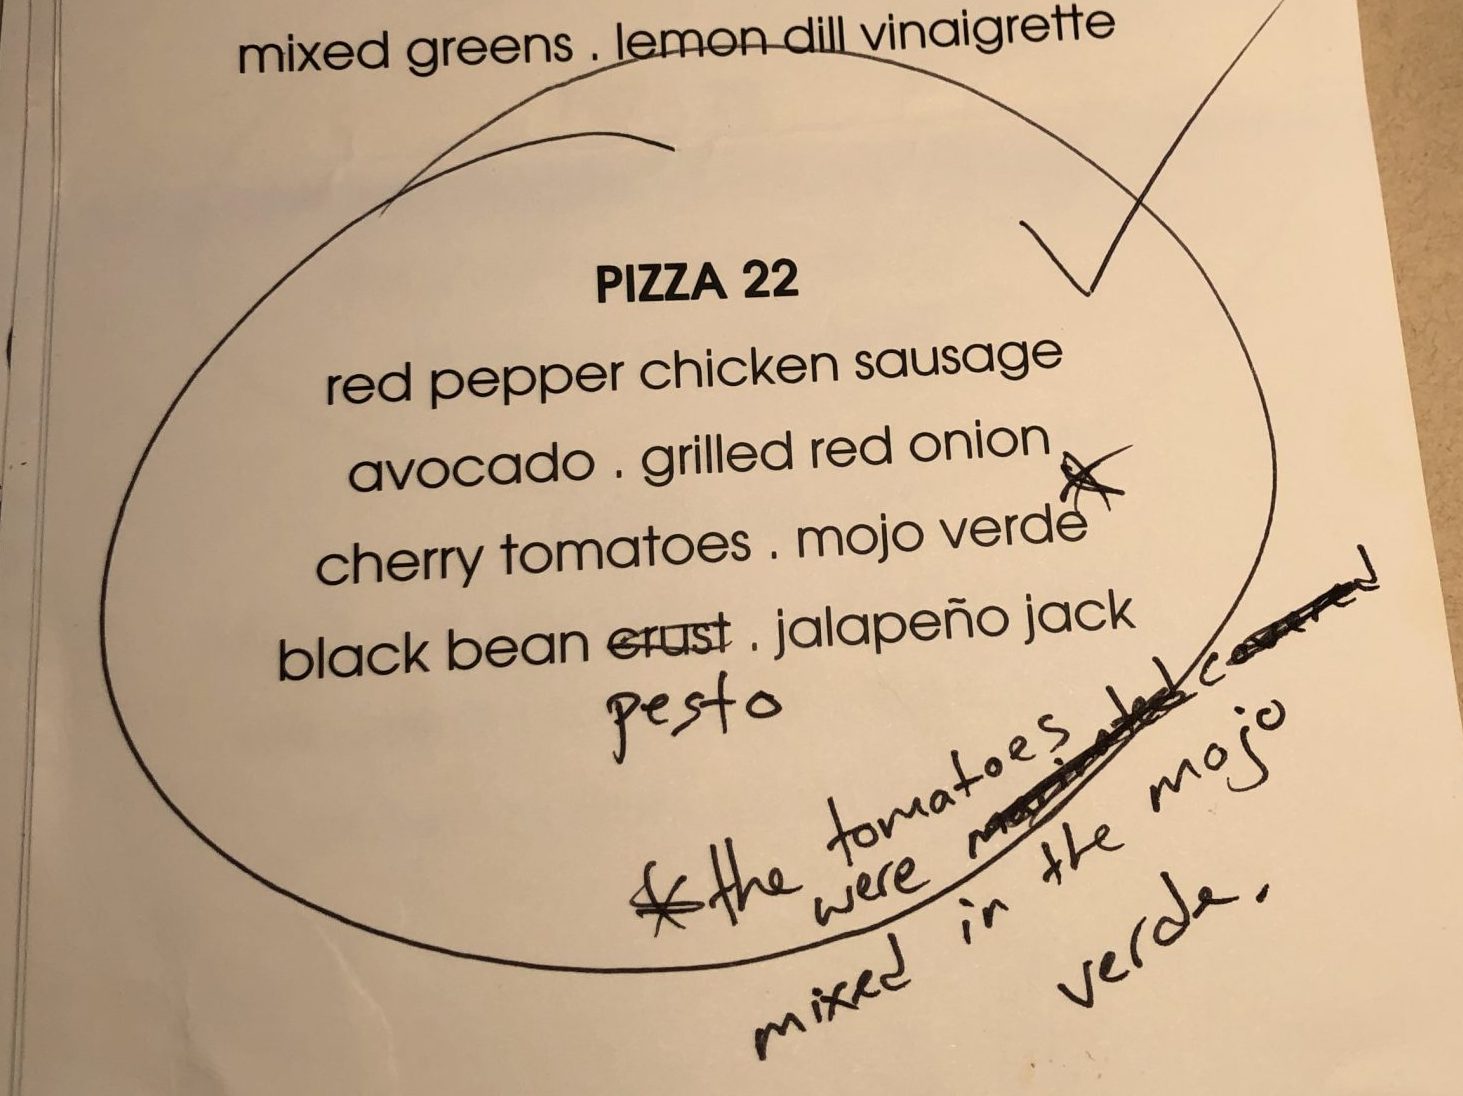 mixed greens . lemon dill vinaigrette
PIZZA 22
red pepper chicken sausage
avocado . grilled red onion
cherry tomatoes . mojo verde
black bean crust . jalapeño jack
pesto
*the tomatoes
were
mixed in the mojo
verde.